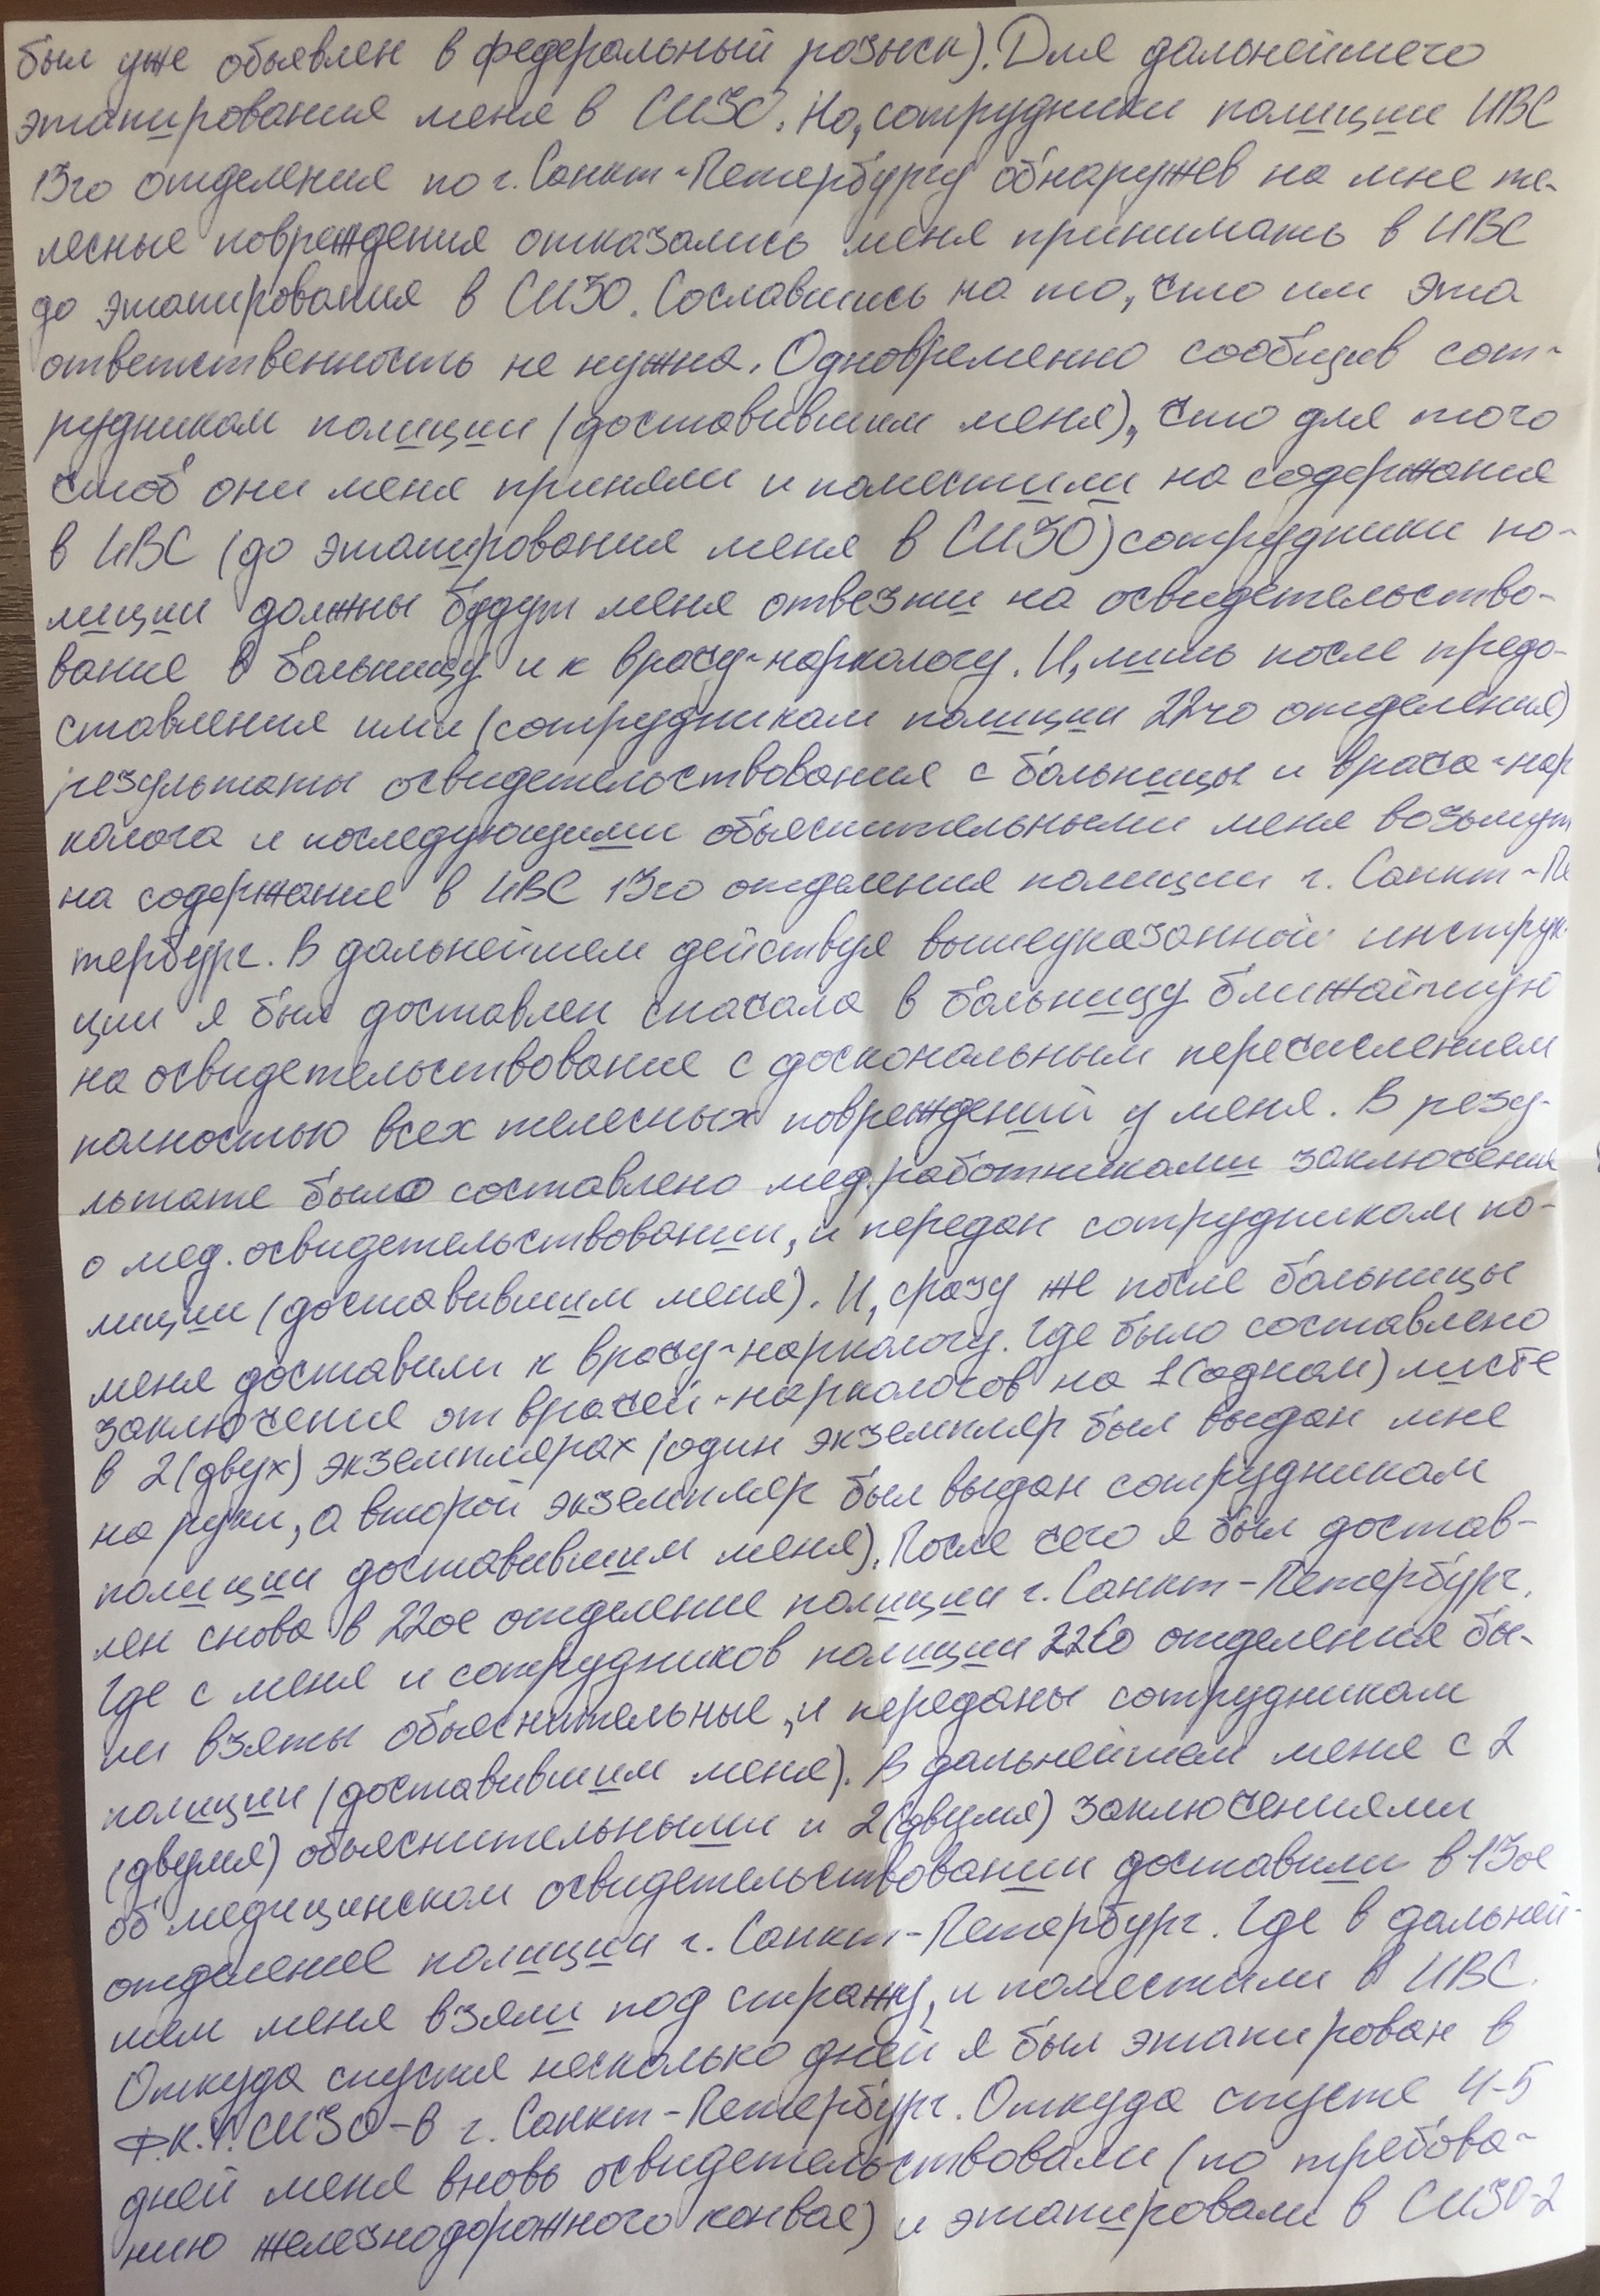 был уже объявлен в федеральный розыск). Для дальнейшего
этапирования меня в СИЗО. Но, сотрудники полиции ИВС
13го отделения по г. Санкт-Петербургу обнаружев на мне те-
лесные повреждения отказались меня принимать в ИВС
до этапирования в СИЗО. Сославшись на то, что им эта
ответственность не нужна. Одновременно сообщив сот-
рудникам полиции (доставившим меня), что для того
чтоб они меня приняли и поместили на содержания
в ИВС (до этапирования меня в СИЗО) сотрудники по-
лиции должны будут меня отвезти на освидетельство-
вание в больницу и к врачу-наркологу. И, лишь после предо-
ставления ими (сотрудникам полиции 22го отделения)
результаты освидетельствования с больницы и врача-нар
колога и последующими объяснительными меня возьмут
на содержание в ИВС 13го отделения полиции г. Санкт-Пе
тербург. В дальнейшем действуя вышеуказанной инструк
ции я был доставлен сначала в больницу ближайшую
на освидетельствование с доскональным перечислением
полностью всех телесных повреждений у меня. В резу-
льтате было составлено мед.работниками заключения
о мед. освидетельствовании, и передан сотрудникам по-
лиции (доставившим меня). И, сразу же после больницы
меня доставили к врачу-наркологу. Где было составлено
заключение от врачей-наркологов на 1 (одном) листе
в 2 (двух) экземплярах (один экземпляр был выдан мне
на руки, а второй экземпляр был выдан сотрудникам
полиции доставившим меня). После чего я был достав-
лен снова в 22ое отделение полиции г. Санкт-Петербург.
Где с меня и сотрудников полиции 22го отделения бы-
ли взяты объяснительные, и переданы сотрудникам
полиции (доставившим меня). В дальнейшем меня с 2
(двумя) объяснительными и 2 (двумя) заключениями
об медицинском освидетельствовании доставили в 13ое
отделение полиции г. Санкт-Петербург. Где в дальней-
шем меня взяли под стражу, и поместили в ИВС.
Откуда спустя несколько дней я был этапирован в
Ф.К.У. СИЗО-в г. Санкт-Петербург. Откуда спустя 4-5
дней меня вновь освидетельствовали (по требова-
нию железнодорожного конвоя) и этапировали в СИЗО-2